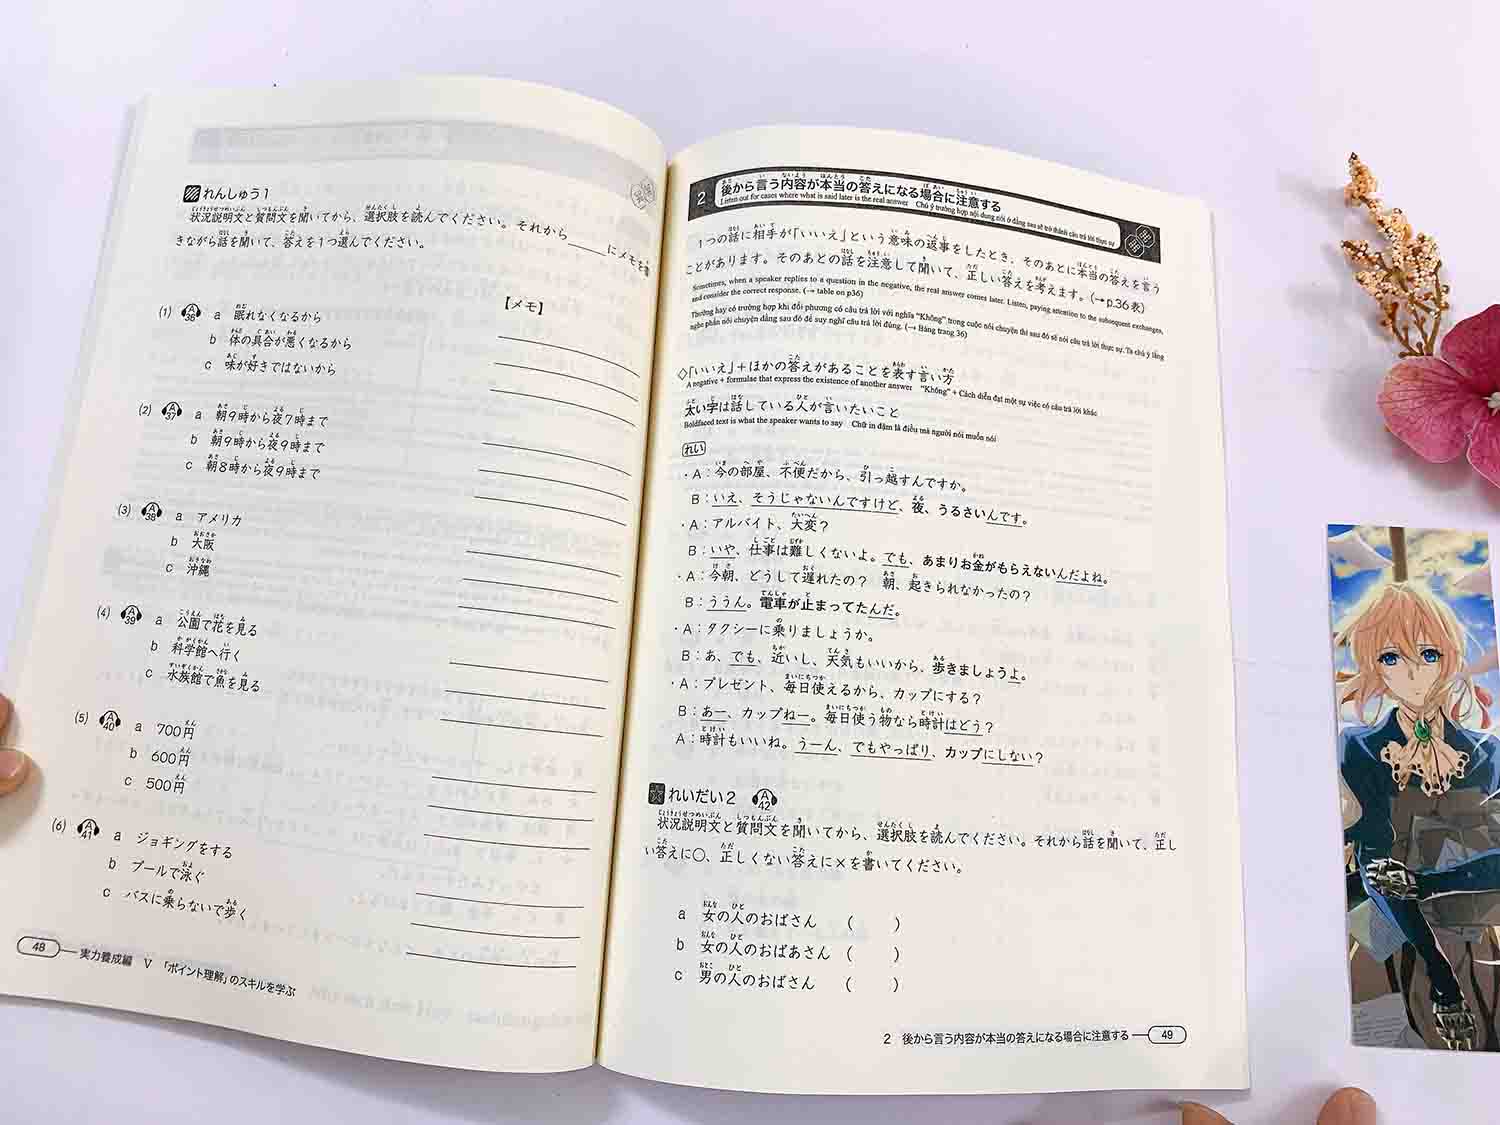 れんしゅう1
状況説明文と質問文を聞いてから、選択肢を読んでください。それから＿＿＿にメモを書
きながら話を聞いて、答えを1つ選んでください。
【メモ】
(1) A 36 a 眠れなくなるから
b 体の具合が悪くなるから
c 味が好きではないから
(2) A 37 a 朝9時から夜7時まで
b 朝9時から夜9時まで
c 朝8時から夜9時まで
(3) A 38 a アメリカ
b 大阪
c 沖縄
(4) A 39 a 公園で花を見る
b 科学館へ行く
c 水族館で魚を見る
(5) A 40 a 700円
b 600円
c 500円
(6) A 41 a ジョギングをする
b プールで泳ぐ
c バスに乗らないで歩く
48 実力養成編 V 「ポイント理解」のスキルを学ぶ
2 後から言う内容が本当の答えになる場合に注意する
Listen out for cases where what is said later is the real answer Chú ý trường hợp nội dung nói ở đằng sau sẽ trở thành câu trả lời thực sự
1つの話に相手が「いいえ」という意味の返事をしたとき、そのあとに本当の答えを言う
ことがあります。そのあとの話を注意して聞いて、正しい答えを考えます。(→p.36表)
Sometimes, when a speaker replies to a question in the negative, the real answer comes later. Listen, paying attention to the subsequent exchanges,
and consider the correct response. (→ table on p36)
Thường hay có trường hợp khi đối phương có câu trả lời với nghĩa "Không" trong cuộc nói chuyện thì sau đó sẽ nói câu trả lời thực sự. Ta chú ý lắng
nghe phần nói chuyện đằng sau đó để suy nghĩ câu trả lời đúng. (→ Bảng trang 36)
◇「いいえ」＋ほかの答えがあることを表す言い方
A negative + formulae that express the existence of another answer "Không" + Cách diễn đạt một sự việc có câu trả lời khác
太い字は話している人が言いたいこと
Boldfaced text is what the speaker wants to say Chữ in đậm là điều mà người nói muốn nói
れい
・A：今の部屋、不便だから、引っ越すんですか。
B：いえ、そうじゃないんですけど、夜、うるさいんです。
・A：アルバイト、大変？
B：いや、仕事は難しくないよ。でも、あまりお金がもらえないんだよね。
・A：今朝、どうして遅れたの？ 朝、起きられなかったの？
B：ううん。電車が止まってたんだ。
・A：タクシーに乗りましょうか。
B：あ、でも、近いし、天気もいいから、歩きましょうよ。
・A：プレゼント、毎日使えるから、カップにする？
B：あー、カップねー。毎日使う物なら時計はどう？
A：時計もいいね。うーん、でもやっぱり、カップにしない？
れいだい2 A 42
状況説明文と質問文を聞いてから、選択肢を読んでください。それから話を聞いて、正し
い答えに○、正しくない答えに×を書いてください。
a 女の人のおばさん ( )
b 女の人のおばあさん ( )
c 男の人のおばさん ( )
2 後から言う内容が本当の答えになる場合に注意する 49